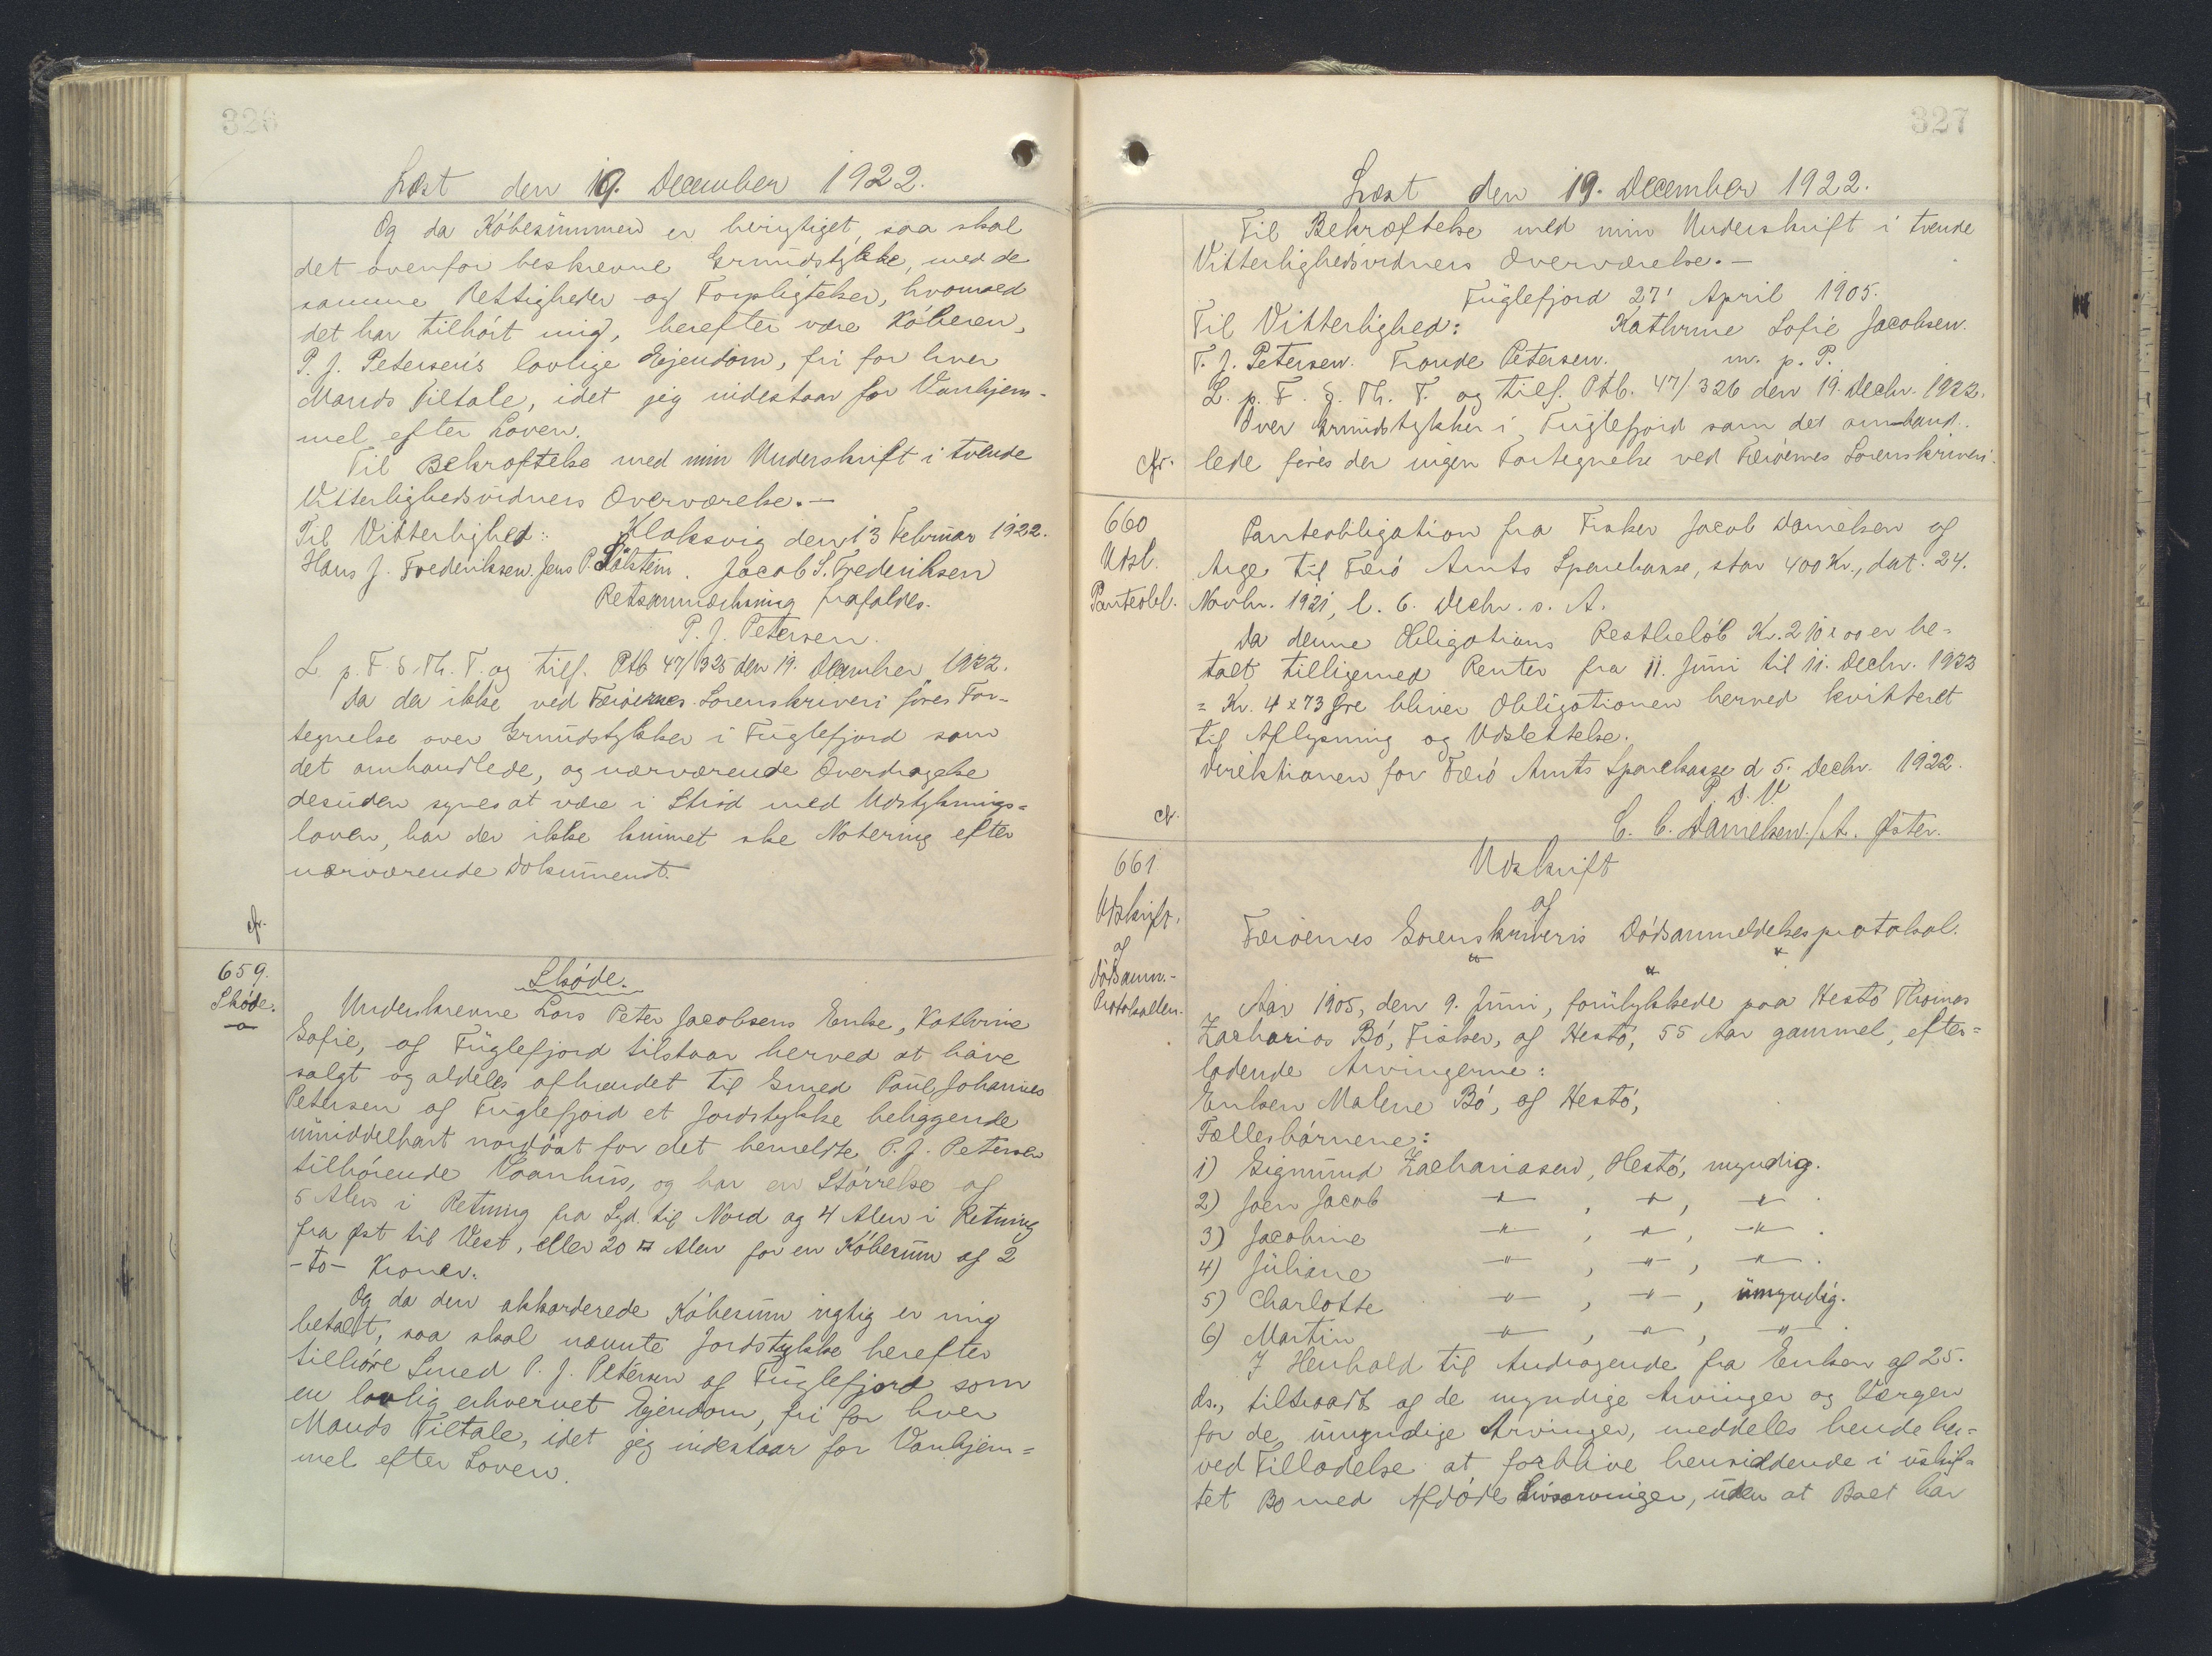 326
Læst den 19. December 1922.
Og da Købesummen er berigtiget, saa skal
det ovenfor beskrevne Grundstykke, med de
samme Rettigheder og Forpligtelser, hvormed
det har tilhørt mig, herefter være Køberen,
P. J. Petersen's lovlige Ejendom, fri for hver
Mands Tiltale, idet jeg indestaar for Vanhjem-
mel efter Loven.
Til Bekræftelse med min Underskrift i tvende
Vitterlighedsvidners Overværelse.-
Til Vitterlighed: Klaksvig den 13 Februar 1922.
Hans J. Frederiksen. Jens P. Jacob S. Frederiksen
Retsanmærkning frafaldes.
P. J. Petersen.
L. p. F. S. Th. T. og tilf. Ptb 47/325 den 19. December 1922.
Da der ikke ved Færøernes Sorenskriveri føres For-
tegnelse over Grundstykker i Fuglefjord som
det omhandlede, og nærværende Overdragelse
desuden synes at være i Strid med Udstyknings=
loven, har der ikke kunnet ske Notering efter
nærværende Dokument.
cfr.
659.
Skøde.
Skøde.
Underskrevne Lars Peter Jacobsens Enke, Kathrine
Sofie, af Fuglefjord tilstaar herved at have
solgt og aldeles afhændet til Smed Poul Johannes
Petersen af Fuglefjord et Jordstykke beliggende
umiddelbart nordøst for det bemeldte P. J. Petersen
tilhørende Vaanhus, og har en Størrelse af
5 Alen i Retning fra Syd til Nord og 4 Alen i Retning
fra Øst til Vest, eller 20 □ Alen for en Købesum af 2
-to- Kroner.
Og da den akkorderede Købesum rigtig er mig
betalt, saa skal nævnte Jordstykke herefter
tilhøre Smed P. J. Petersen af Fuglefjord som
en lovlig erhvervet Ejendom, fri for hver
Mands Tiltale, idet jeg indestaar for Vanhjem=
mel efter Loven.
327
Læst den 19. December 1922.
Til Bekræftelse med min Underskrift i tvende
Vitterlighedsvidners Overværelse.-
Fuglefjord 27' April 1905.
Til Vitterlighed: Kathrine Sofie Jacobsen.
T. J. Petersen. Tronde Petersen. m. p. P.
L. p. F. S. Th. T. og tilf. Ptb. 47/326 den 19. Decbr. 1922.
Over Grundstykker i Fuglefjord som det omhand-
lede føres der ingen Fortegnelse ved Færøernes Sorenskriveri.
cfr.
660
Udsl.
Panteobl.
Panteobligation fra Fisker Jacob Danielsen af
Arge til Færø Amts Sparekasse, stor 400 Kr., dat. 24.
Novbr. 1921, l. 6. Decbr. s. A.
Da denne Obligations Restbeløb Kr. 210 x 00 er be=
talt tilligemed Renter fra 11. Juni til 11. Decbr. 1922
= Kr. 4 x 73 Øre bliver Obligationen herved kvitteret
til Aflysning og Udslettelse.
Direktionen for Færø Amts Sparekasse d 5. Decbr. 1922.
P. D. V.
C. C. Danielsen./A. Øster.
cfr.
661
Udskrift.
af
Dødsanm.-
Protokollen.
Udskrift
af
Færøernes Sorenskriveris Dødsanmeldelsesprotokol.
" " "
Aar 1905, den 9. Juni, forulykkede paa Hestø Thomas
Zacharias Bø, Fisker, af Hestø, 55 Aar gammel, efter=
ladende Arvingerne:
Enken Malene Bø, af Hestø,
Fællesbørnene:
1) Sigmund Zachariasen, Hestø, myndig.
2) Joen Jacob -"- , -"- , -"- .
3) Jacobine -"- , -"- , -"- .
4) Juliane -"- , -"- , -"- .
5) Charlotte -"- , -"- , umyndig.
6) Martin -"- , -"- , -"- .
I Henhold til Andragende fra Enken af 25.
ds., tiltraadt af de myndige Arvinger og Værgen
for de umyndige Arvinger, meddeles hende her=
ved Tilladelse at forblive hensiddende i uskif=
tet Bo med Afdødes Livsarvinger, uden at Boet har